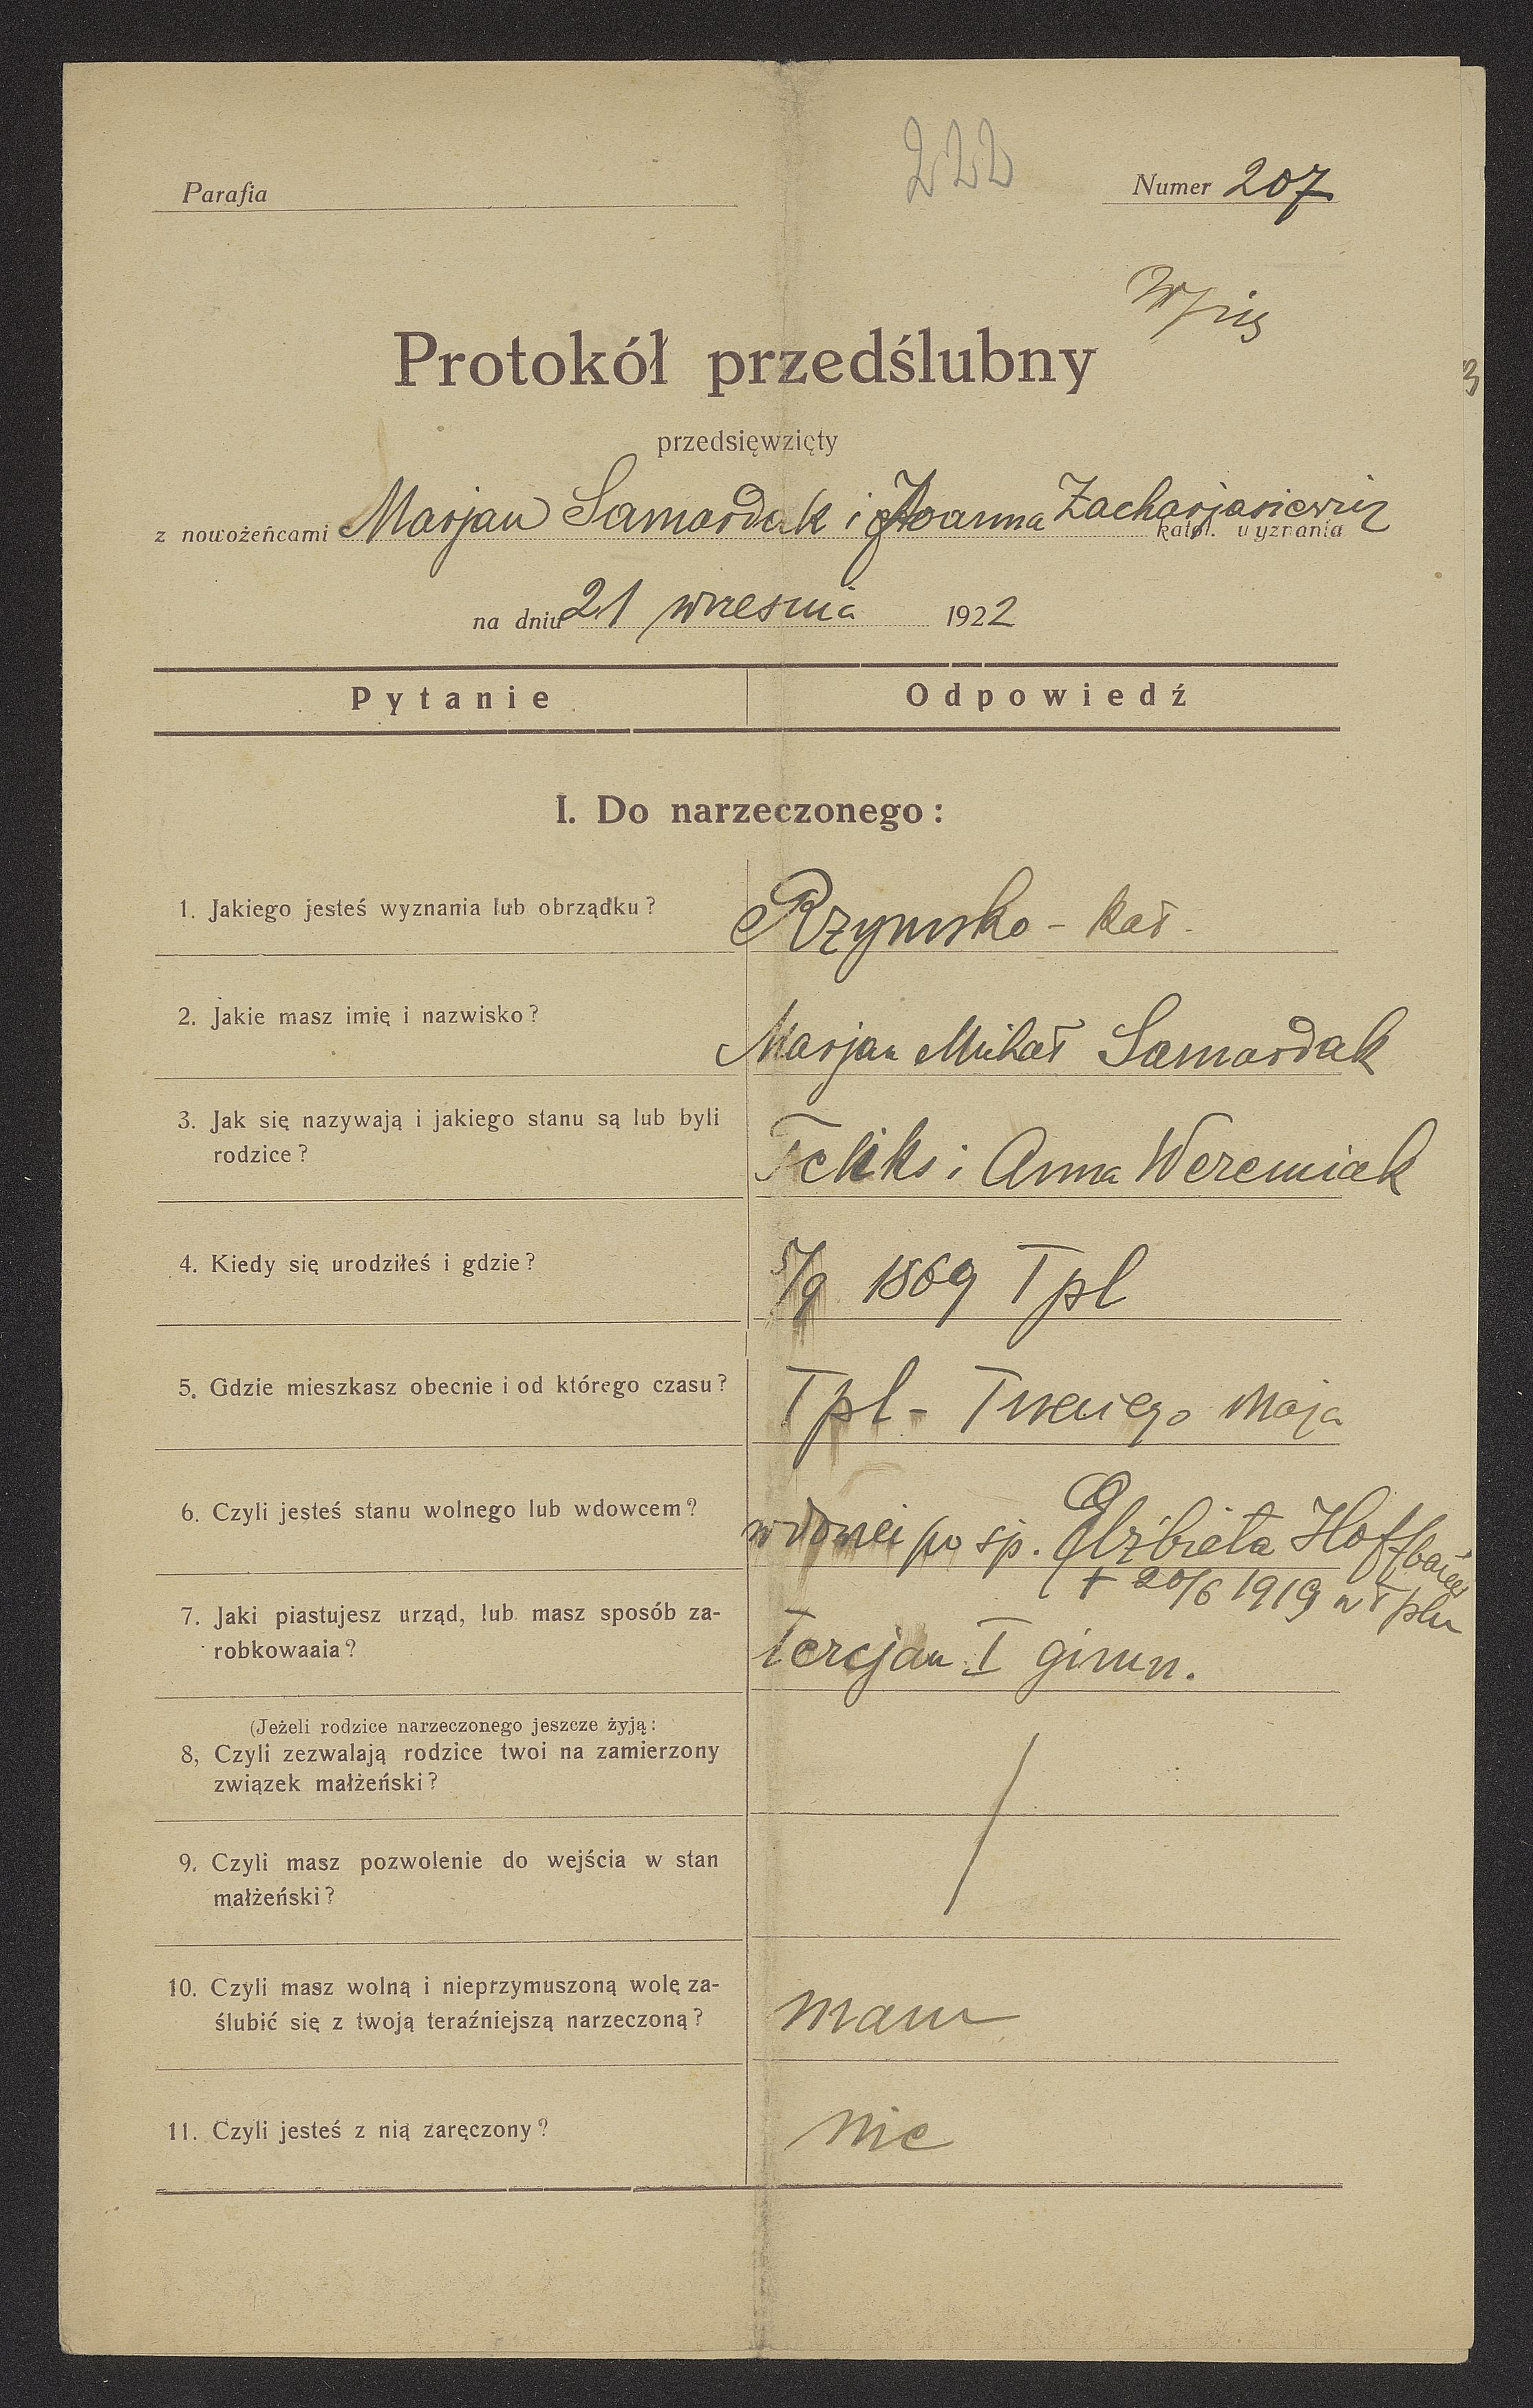 222
Parafia
Numer 207
Wpis
3
Protokół przedślubny
przedsięwzięty
z nowożeńcami Marjan Samardak i Joanna Zacharjasiewicz katol. wyznania
na dniu 21 wresnia 1922
Pytanie Odpowiedź
I. Do narzeczonego:
1. Jakiego jesteś wyznania lub obrządku? Rzymsko - kat.
2. Jakie masz imię i nazwisko? Marjan Michał Samardak
3. Jak się nazywają i jakiego stanu są lub byli
rodzice? Feliks i Anna Weremiak
4. Kiedy się urodziłeś i gdzie? 5/9 1869 Tpl
5. Gdzie mieszkasz obecnie i od którego czasu? Tpl - Trzeciego Maja
6. Czyli jesteś stanu wolnego lub wdowcem? wdowiec po śp. Elżbieta Hoffbauer
+ 20/6 1919 w Tplu
7. Jaki piastujesz urząd, lub masz sposób za-
robkowaaia? Tercjan I gimn.
(Jeżeli rodzice narzeczonego jeszcze żyją:
8, Czyli zezwalają rodzice twoi na zamierzony
związek małżeński?
9. Czyli masz pozwolenie do wejścia w stan
małżeński?
10. Czyli masz wolną i nieprzymuszoną wolę za-
ślubić się z twoją teraźniejszą narzeczoną? mam
11. Czyli jesteś z nią zaręczony? nie